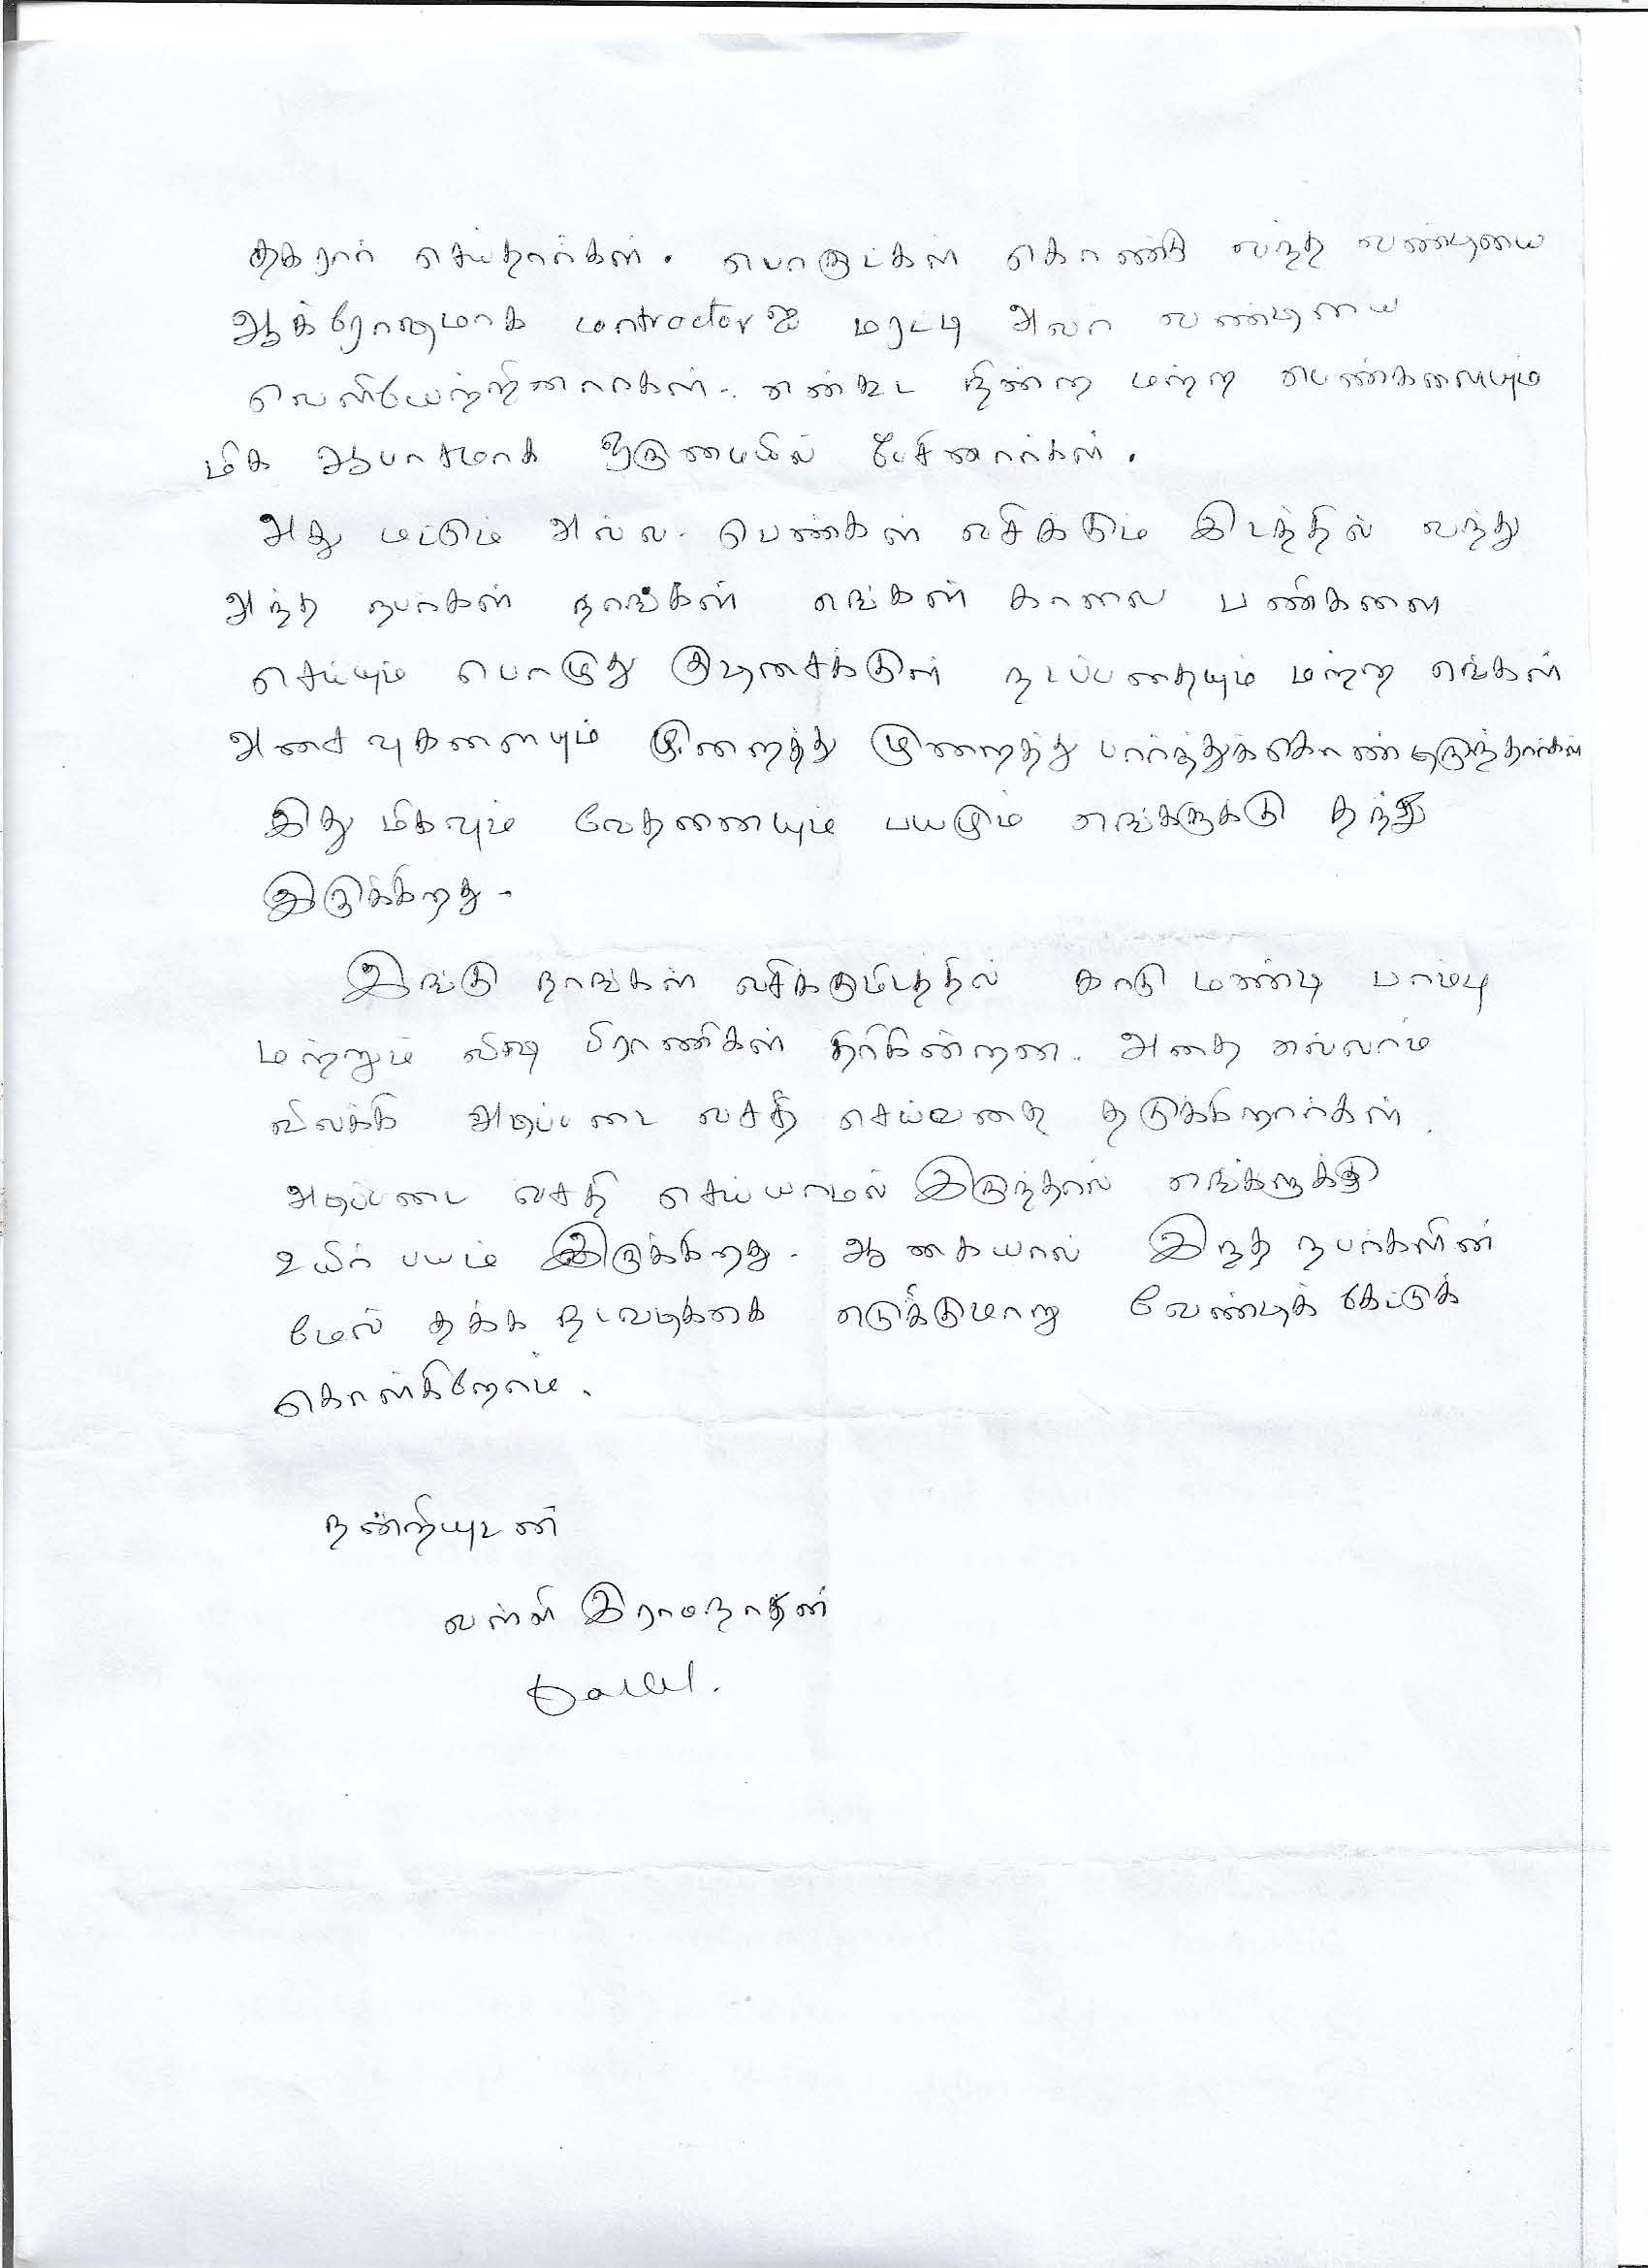 தகரார் செய்தார்கள். பொருட்கள் கொண்டு வந்த வண்டியை
ஆக்ரோஷமாக contractor ஐ மிரட்டி அவர் வண்டியை
வெளியேற்றினார்கள். என்கூட நின்ற மற்ற பெண்களையும்
மிக ஆபாசமாக ஒருமையில் பேசினார்கள்.
அது மட்டும் அல்ல. பெண்கள் வசிக்கும் இடத்தில் வந்து
அந்த நபர்கள் நாங்கள் எங்கள் காலை பணிகளை
செய்யும் பொழுது குடிசைக்குள் நடப்பதையும் மற்ற எங்கள்
அசைவுகளையும் முறைத்து முறைத்து பார்த்துக்கொண்டிருந்தார்கள்
இது மிகவும் வேதனையும் பயமும் எங்களுக்கு தந்து
இருக்கிறது.
இங்கு நாங்கள் வசிக்குமிடத்தில் காடு மண்டி பாம்பு
மற்றும் விஷ பிராணிகள் திரிகின்றன. அதை எல்லாம்
விலக்கி அடிப்படை வசதி செய்வதை தடுக்கிறார்கள்.
அடிப்படை வசதி செய்யாமல் இருந்தால் எங்களுக்கு
உயிர் பயம் இருக்கிறது. ஆகையால் இந்த நபர்களின்
மேல் தக்க நடவடிக்கை எடுக்குமாறு வேண்டிக் கேட்டுக்
கொள்கிறோம்.
நன்றியுடன்
வள்ளி இராமநாதன்